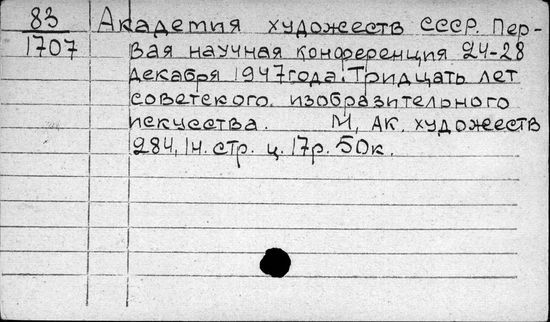 83 Академия художеств СССР. Пер-
1707 вая научная конференция 24-28
декабря 1947 года: Тридцать лет
советского изобразительного
искусства. М, Ак. художеств
284, 1н. стр. ц. 17р. 50к.